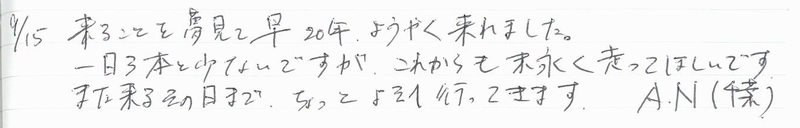 9/15 来ることを夢見て早20年、ようやく来れました。
一日3本と少ないですが、これからも末永く走ってほしいです
また来るその日まで、ちょっと行ってきます. A.N(千葉)